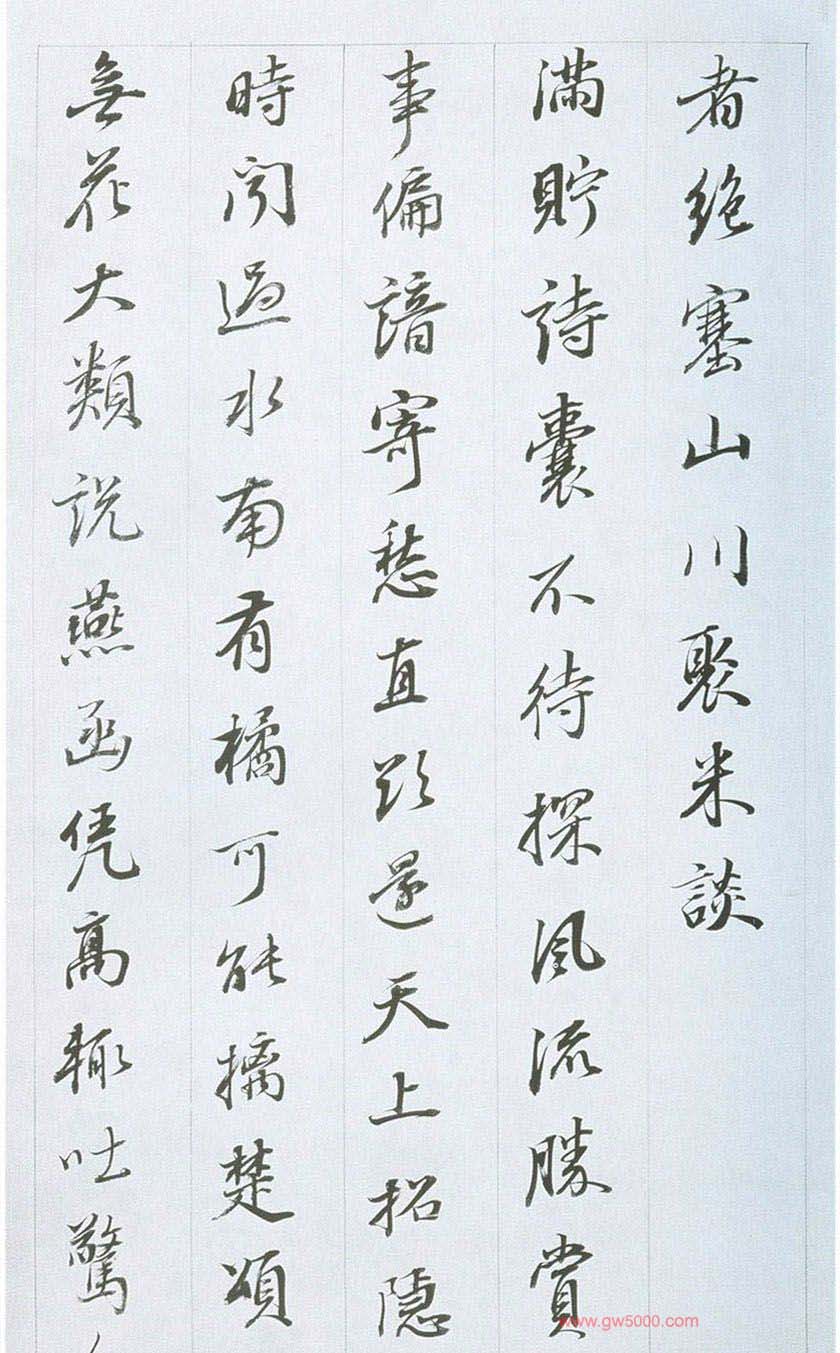 者絶塞山川聚米談
滿貯詩囊不待探風流勝賞
事偏諳寄愁直欲還天上招隱
時聞過水南有橘可能摛楚頌
無花大類説燕函凭高輒吐驚
www.gw5000.com